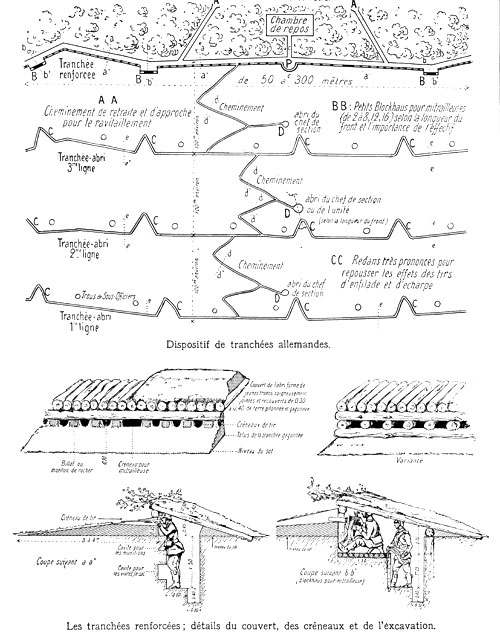 A
A
Chambre
de repos
Tranchée
renforcée
a
B b'
B b'
a'
P
a'
B b'
de 50 à 300 mètres
A A
Cheminement de retraite et d'approche
pour le ravitaillement
Cheminement
abri du
chef de
section
D
BB: Petits Blockhaus pour mitrailleuses
(de 2 à 8, 12, 16) selon la longueur du
front et l'importance de l'effectif
C
C
C
C
Tranchée-abri
3me ligne
e
e'
Cheminement
d
d
d'
D
abri du chef de section
ou de l'unité
(selon la longueur du front)
C
C
C
C
Tranchée-abri
2me ligne
e
e'
Cheminement
d
d
d'
D
abri du chef
de section
CC Redans très prononcés pour
repousser les effets des tirs
d'enfilade et d'écharpe
C
C
C
C
Trous de Sous-Officiers
Tranchée-abri
1re ligne
e
e'
Dispositif de tranchées allemandes.
Couvert de l'abri formé de
jeunes troncs soigneusement
jointés et recouverts de 0,30
à 0,40 de terre pilonnée et gazonnée
Créneaux de tir
Talus de la tranchée gazonnée
Niveau du sol
Billot ou
moellon de rocher
Créneau pour
mitrailleuse
Variante
Créneau de tir
3 à 4m
Coupe suivant a a'
Cavité pour
les munitions
Cavité pour
les vivres
Niveau du sol
Coupe suivant b b'
(blockhaus pour mitrailleurs)
Les tranchées renforcées ; détails du couvert, des créneaux et de l'excavation.